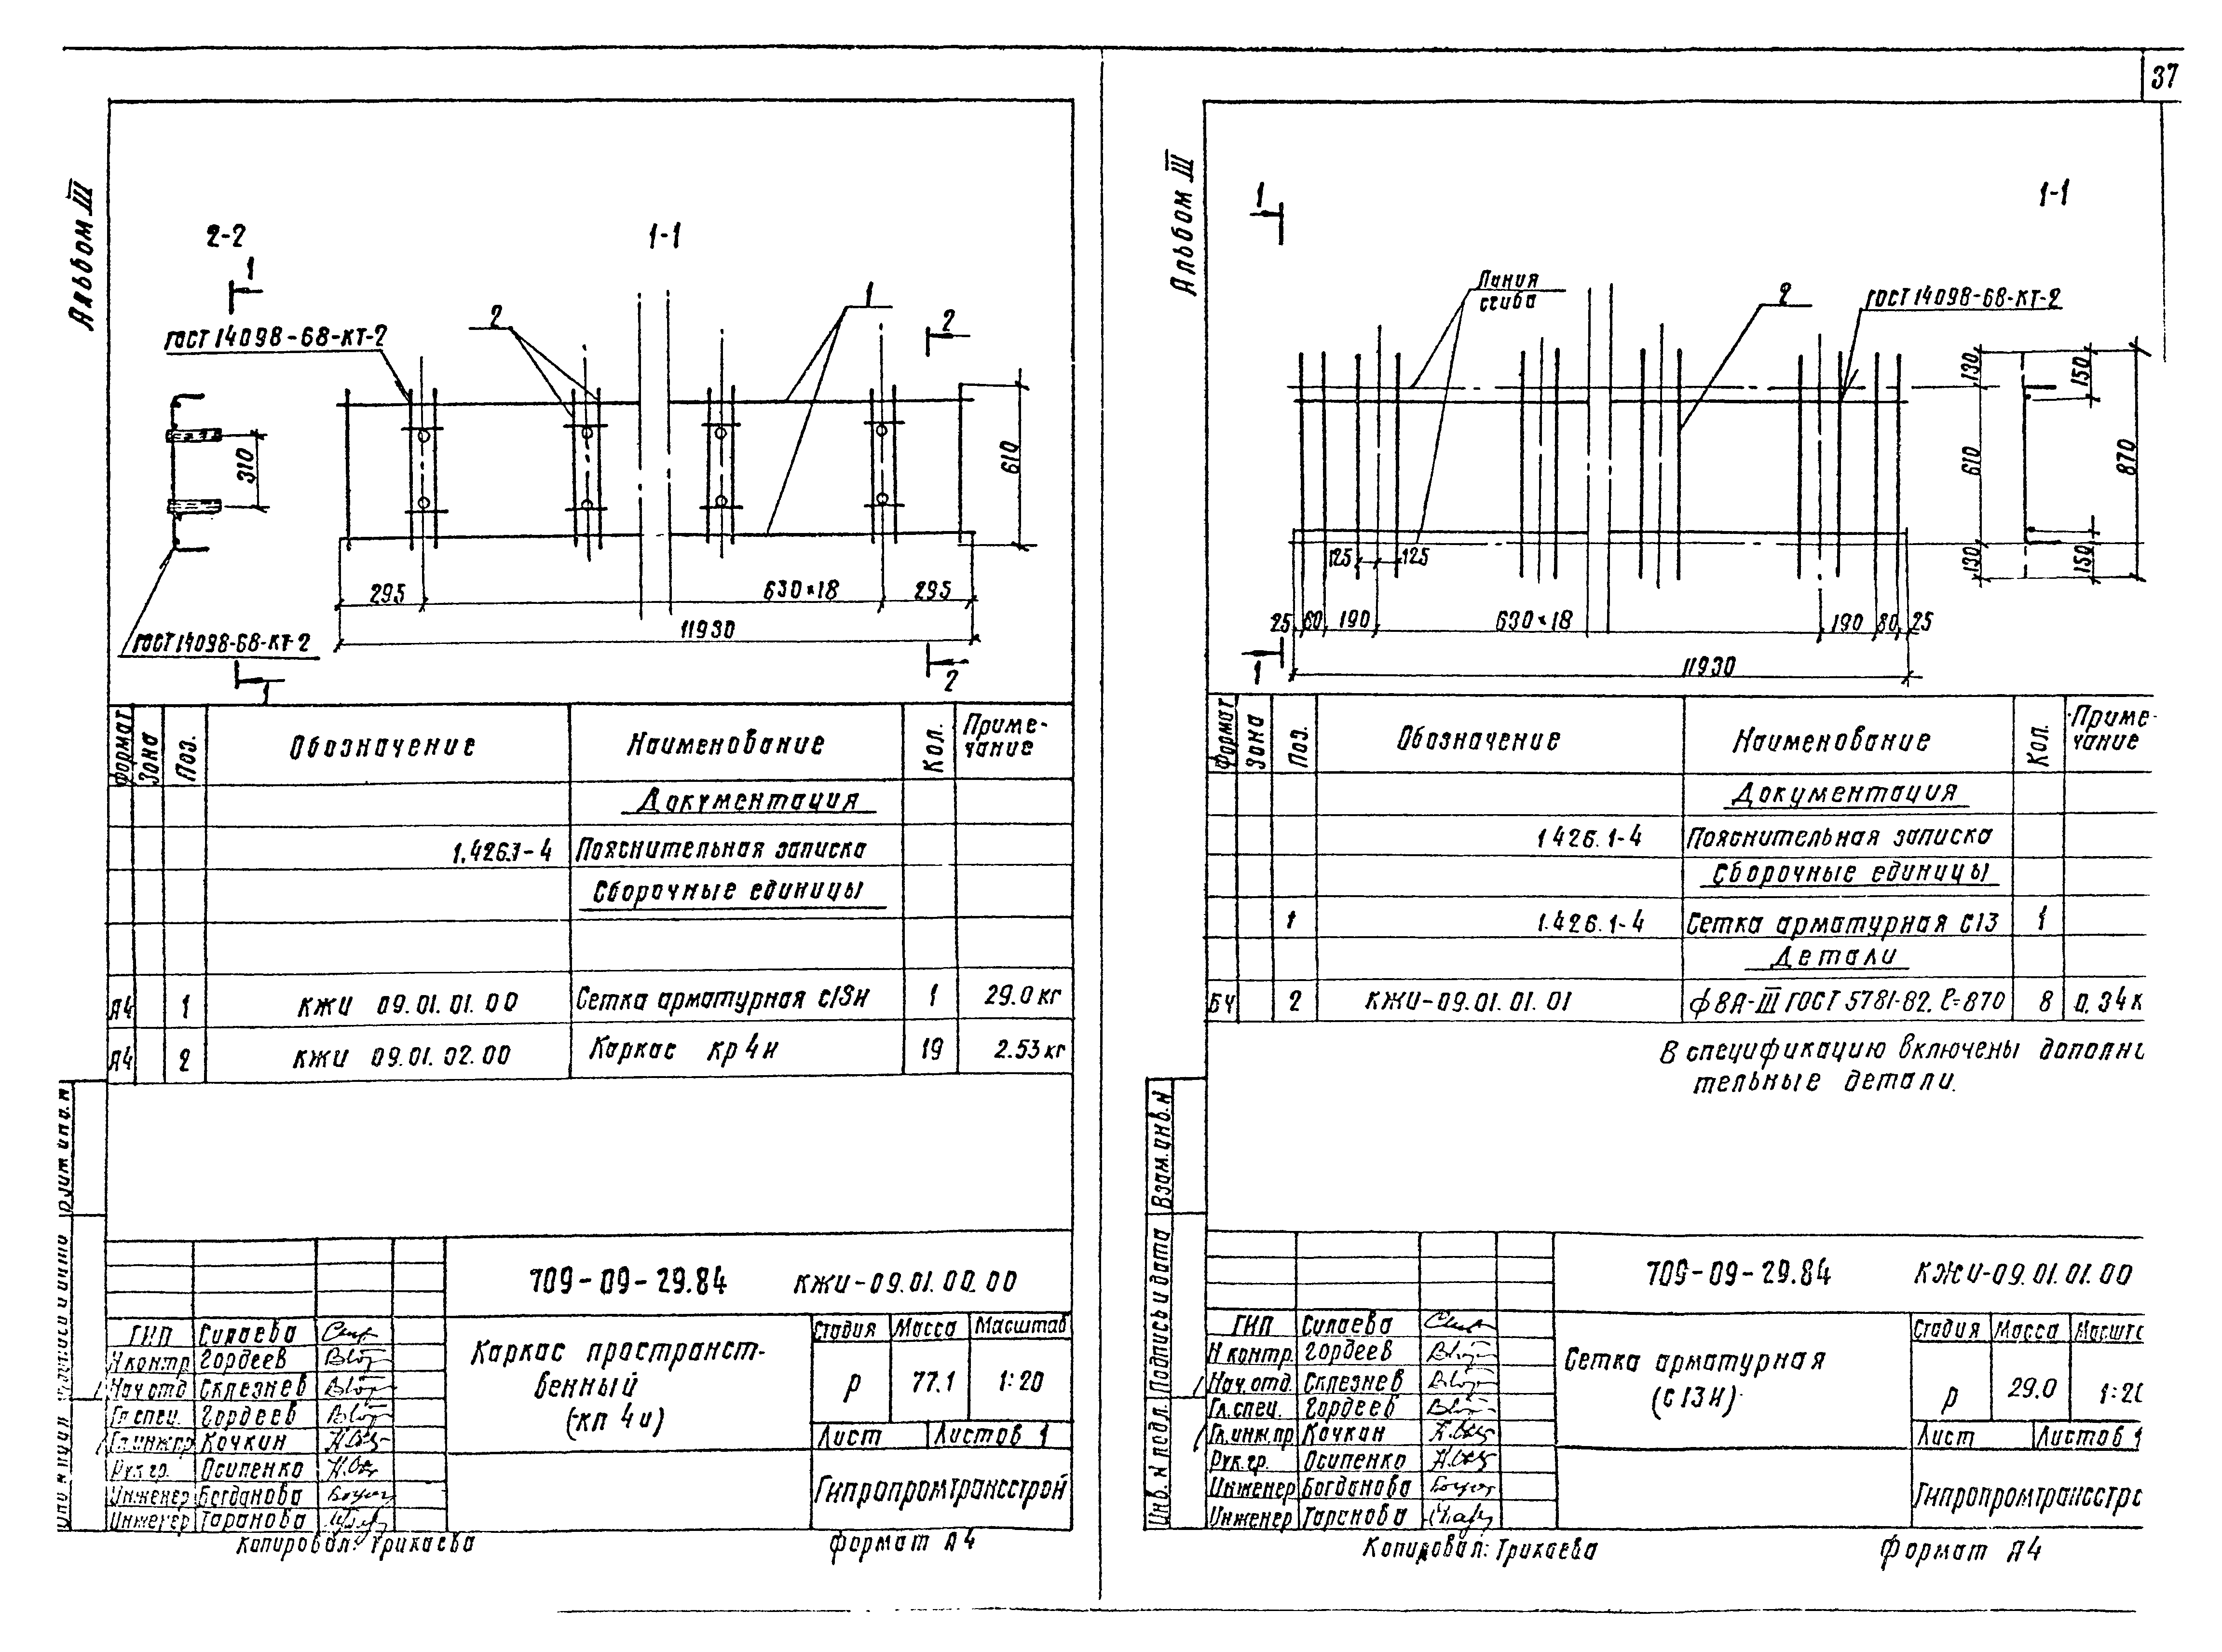 37
Альбом III
2-2
1
1-1
ГОСТ 14098-68-КТ-2
2
1
2
310
610
295
630×18
295
11930
ГОСТ 14098-68-КТ-2
1
2
Формат
Зона
Поз.
Обозначение
Наименование
Кол.
Приме-
чание
Документация
1.426.1-4 Пояснительная записка
Сборочные единицы
А4 1 КЖИ 09.01.01.00 Сетка арматурная с13и 1 29.0 кг
А4 2 КЖИ 09.01.02.00 Каркас кр 4и 19 2.53 кг
709-09-29.84 КЖИ-09.01.00.00
ГИП Силаева
Н контр. Гордеев
Нач отд Склезнев
Гл спец. Гордеев
Гл инж пр Кочкин
Рук. гр. Осипенко
Инженер Богданова
Инженер Таранова
Каркас пространст-
венный
(кп 4и)
Стадия Масса Масштаб
р 77.1 1:20
Лист Листов 1
Гипропромтрансстрой
Копировал: Трихаева Формат А4
Альбом III
1
1-1
Линия
сгиба
2
ГОСТ 14098-68-КТ-2
130
150
610
870
130
150
125
125
25
60
190
630×18
190
80
25
11930
1
Формат
Зона
Поз.
Обозначение
Наименование
Кол.
Приме-
чание
Документация
1.426.1-4 Пояснительная записка
Сборочные единицы
1 1.426.1-4 Сетка арматурная с13 1
Детали
БЧ 2 КЖИ-09.01.01.01 ф8А-III ГОСТ 5781-82. ℓ=870 8 0.34 к
В спецификацию включены дополни
тельные детали.
Взам. инв. N
Подпись и дата
Инв. N подл.
709-09-29.84 КЖИ-09.01.01.00
ГИП Силаева
Н контр. Гордеев
Нач. отд. Склезнев
Гл. спец. Гордеев
Гл. инж. пр Кочкин
Рук. гр. Осипенко
Инженер Богданова
Инженер Таранова
Сетка арматурная
(с 13и)
Стадия Масса Масшта
р 29.0 1:20
Лист Листов 1
Гипропромтрансстро
Копировал: Трихаева Формат А4